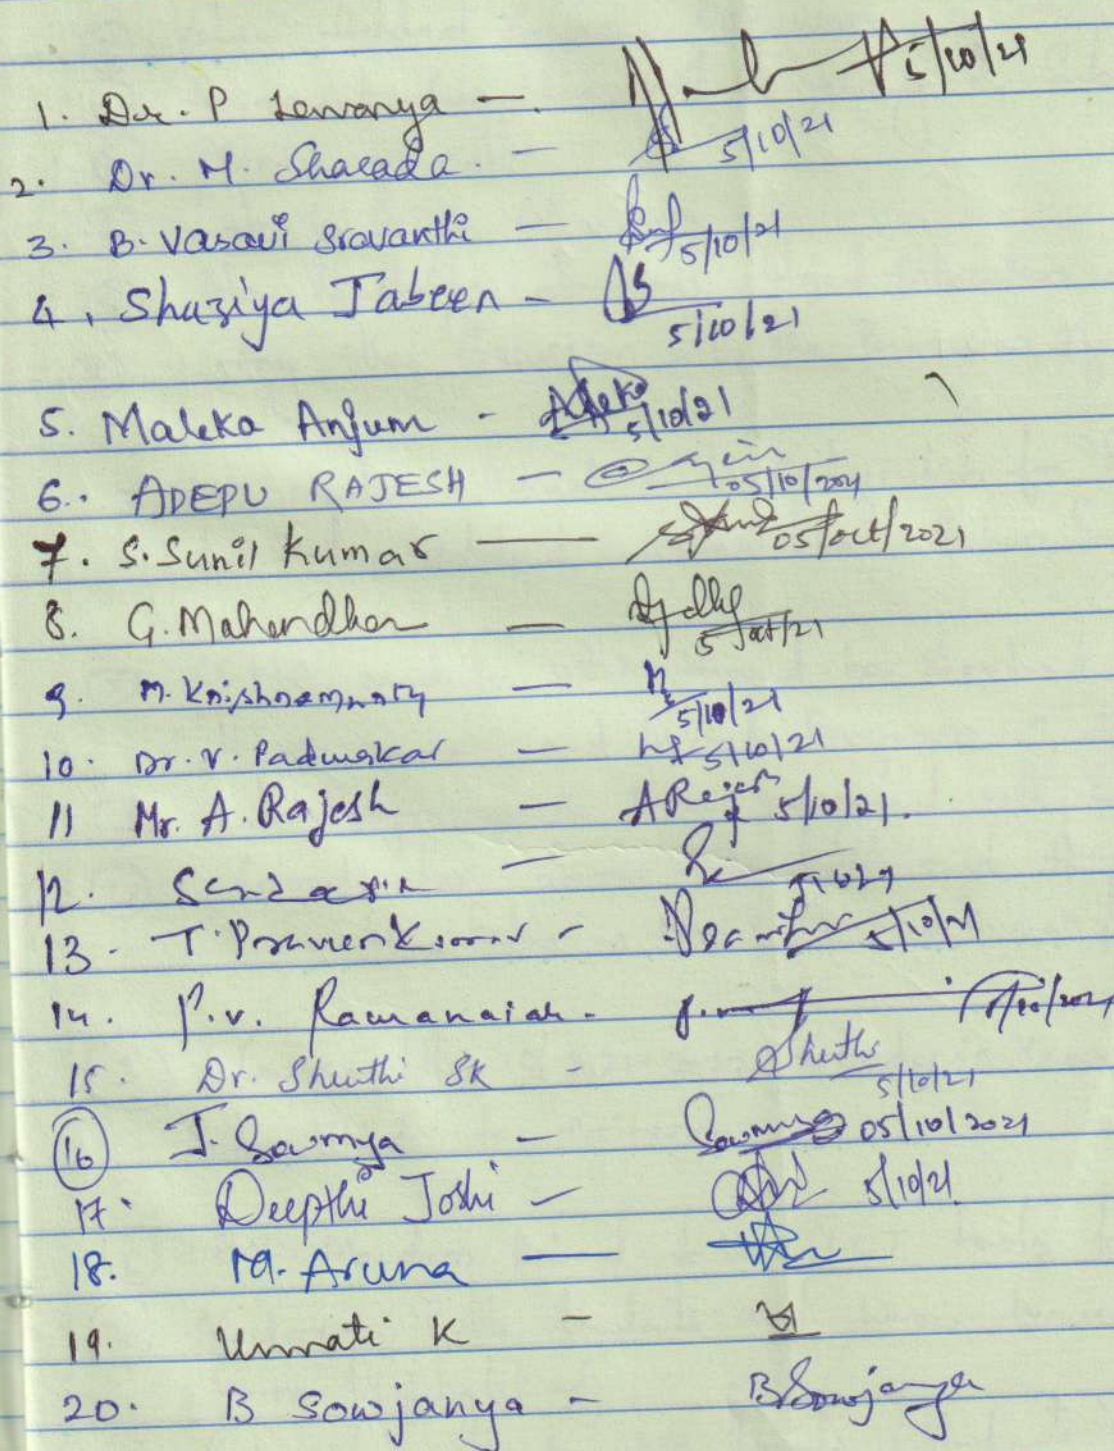 1. Dr. P Lavanya —
5/10/21
2. Dr. M. Sharada. — 5/10/21
3. B. Vasavi Sravanthi — 5/10/21
4. Shaziya Jabeen - 5/10/21
5. Maleka Anjum - 5/10/21
6. ADEPU RAJESH — 05/10/2021
7. S. Sunil Kumar — 05/oct/2021
8. G. Mahendhar — 5/oct/21
9. M. Krishnamurty — 5/10/21
10. Dr. V. Padmakar — 5/10/21
11 Mr. A. Rajesh — A Rajesh 5/10/21.
12. —
13. T. Praveen Kumar - 5/10/21
14. P.V. Ramanaiah - /10/2021
15. Dr. Shruthi SK - Shruthi 5/10/21
16 J. Sowmya — Sowmya 05/10/2021
17. Deepthi Joshi — 5/10/21
18. M. Aruna —
19. Unnati K —
20. B Sowjanya - B Sowjanya